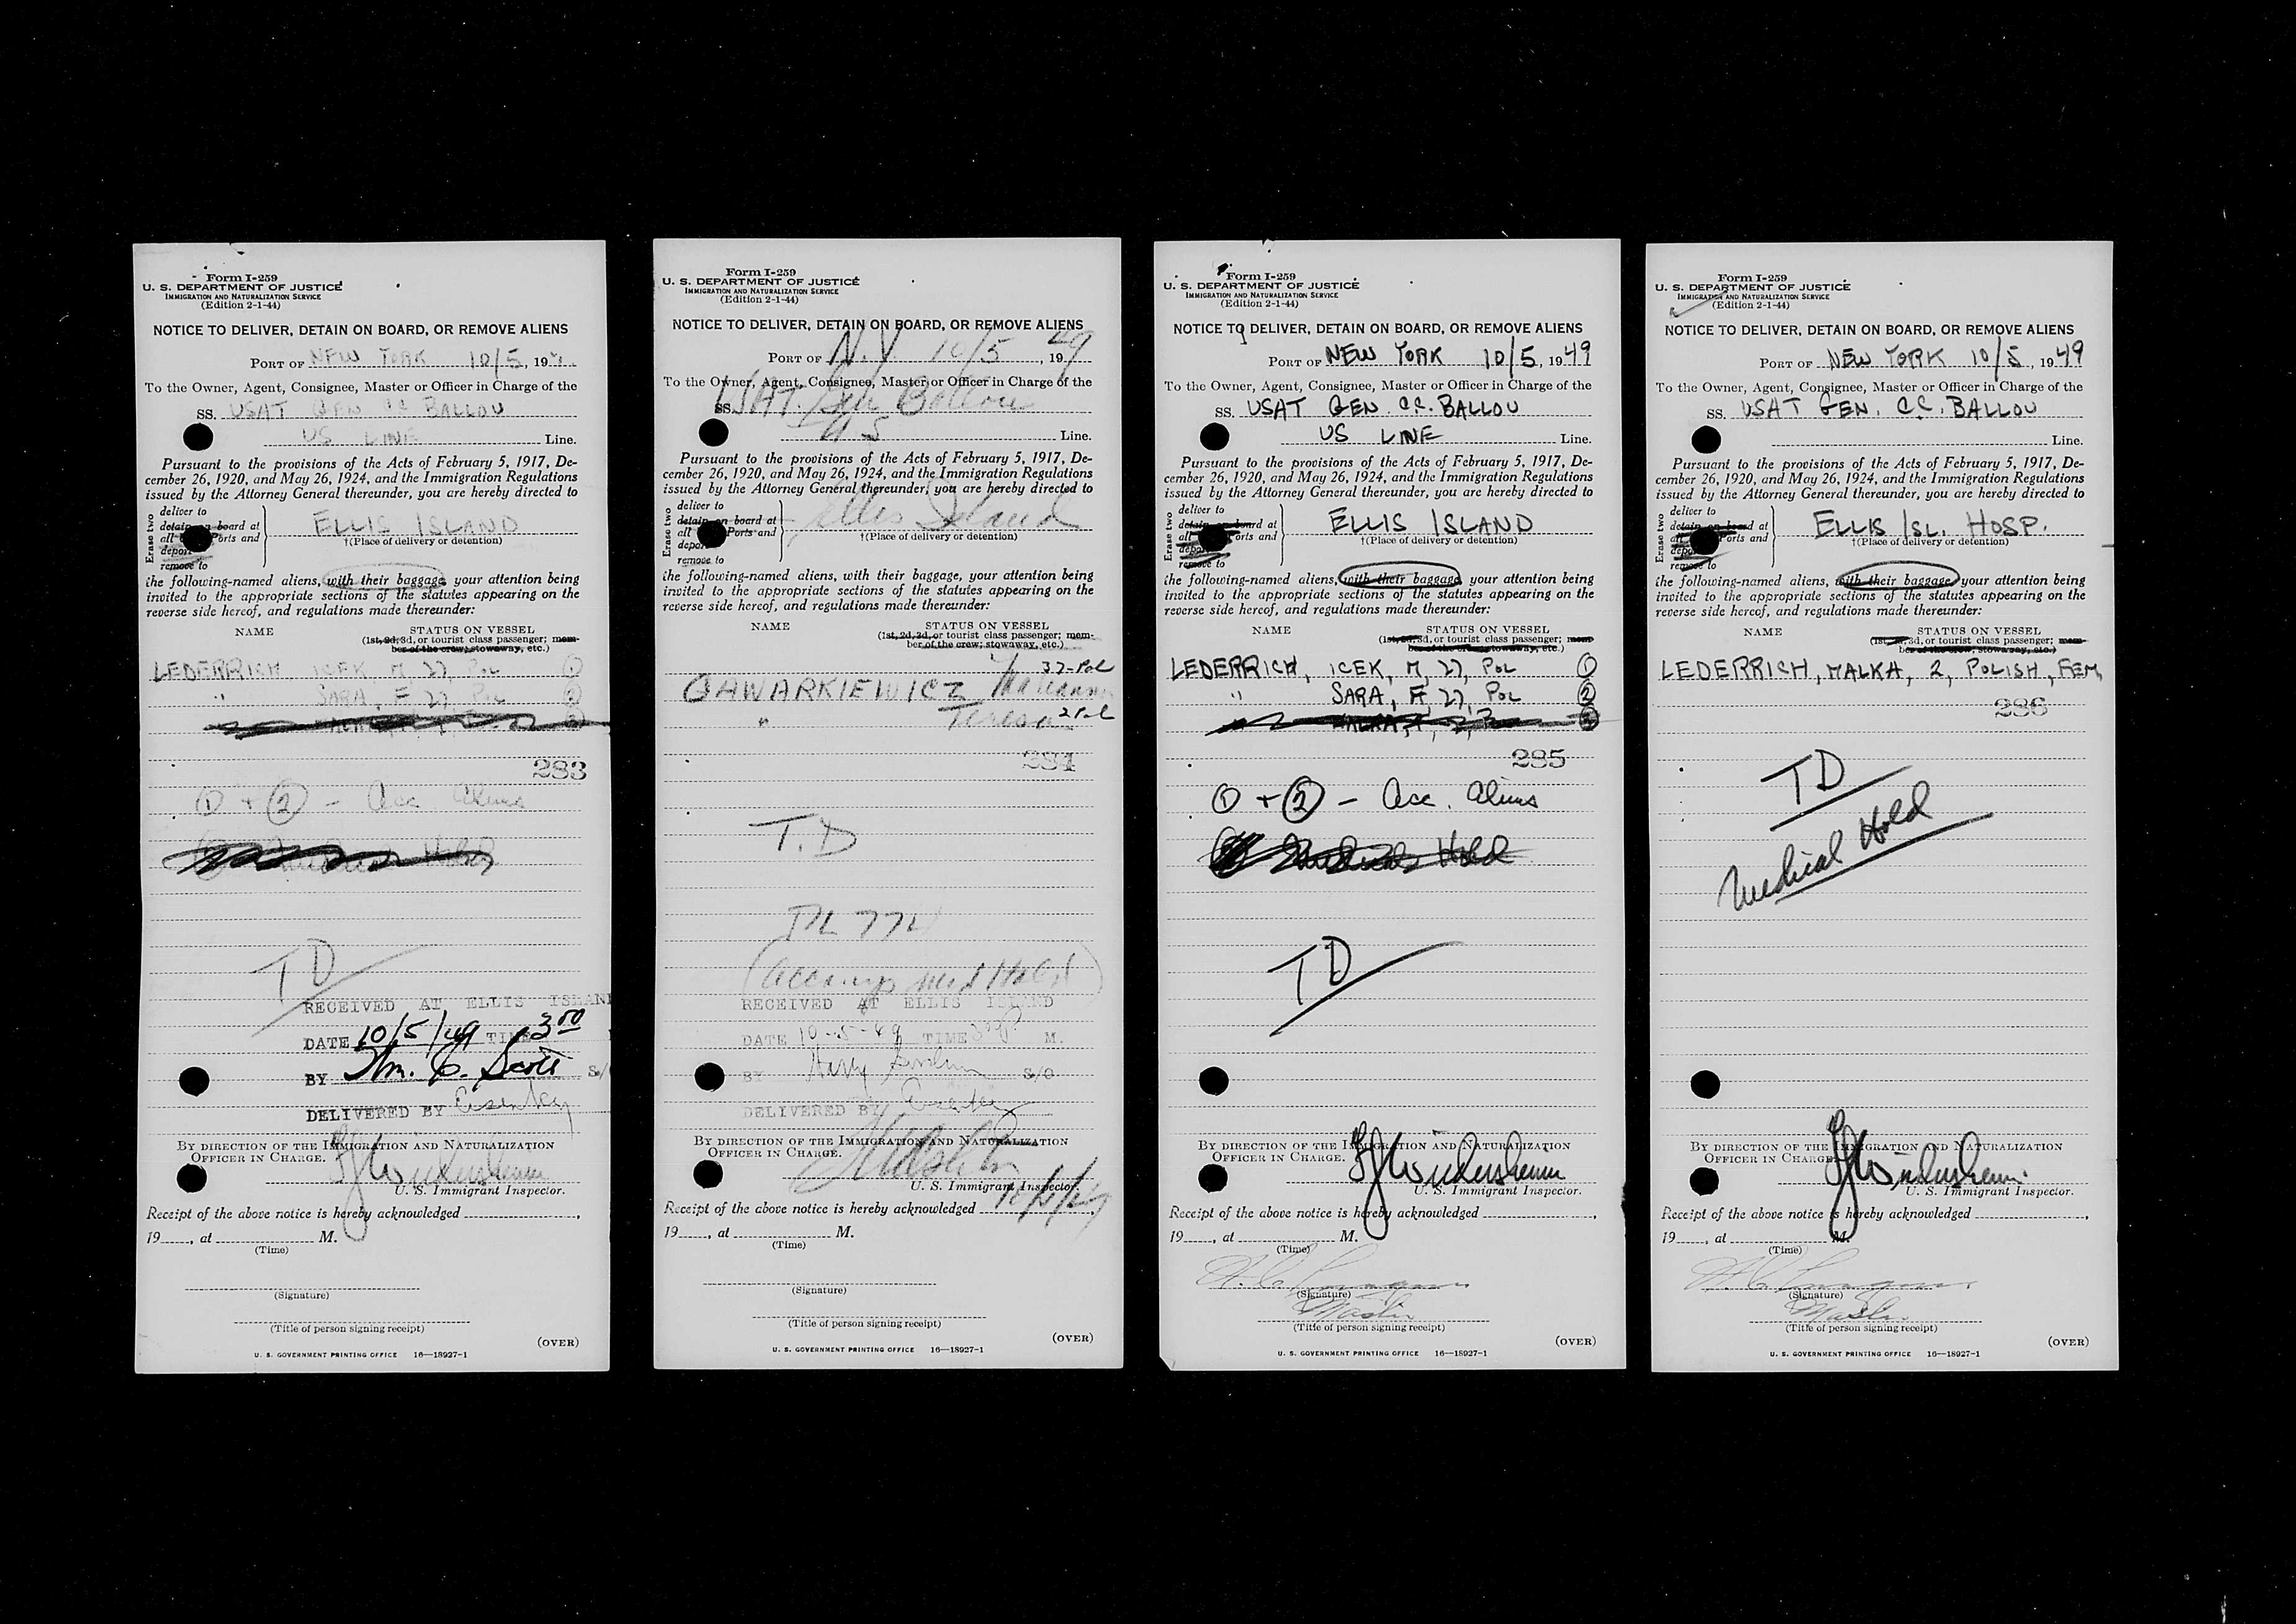 Form I-259
U. S. DEPARTMENT OF JUSTICE
IMMIGRATION AND NATURALIZATION SERVICE
(Edition 2-1-44)
NOTICE TO DELIVER, DETAIN ON BOARD, OR REMOVE ALIENS
PORT OF NEW YORK 10/5, 194
To the Owner, Agent, Consignee, Master or Officer in Charge of the
SS. USAT GEN CC BALLOU
US LINE Line.
Pursuant to the provisions of the Acts of February 5, 1917, De-
cember 26, 1920, and May 26, 1924, and the Immigration Regulations
issued by the Attorney General thereunder, you are hereby directed to
Erase two
deliver to
detain on board at
all Ports and
deport
remove to
ELLIS ISLAND
†(Place of delivery or detention)
the following-named aliens, with their baggage, your attention being
invited to the appropriate sections of the statutes appearing on the
reverse side hereof, and regulations made thereunder:
NAME STATUS ON VESSEL
(1st, 2d, 3d, or tourist class passenger; mem-
ber of the crew; stowaway, etc.)
LEDERRICH ICEK, M, 27, POL 1
" SARA, F 27, POL 2
283
1 + 2 - Acc. Aliens
TD
RECEIVED AT ELLIS ISLAND
DATE 10/5/49 TIME 3 00
BY Wm. C. Scott S/O
DELIVERED BY
BY DIRECTION OF THE IMMIGRATION AND NATURALIZATION
OFFICER IN CHARGE.
U. S. Immigrant Inspector.
Receipt of the above notice is hereby acknowledged
19 , at M.
(Time)
(Signature)
(Title of person signing receipt)
(OVER)
U. S. GOVERNMENT PRINTING OFFICE 16—18927-1
Form I-259
U. S. DEPARTMENT OF JUSTICE
IMMIGRATION AND NATURALIZATION SERVICE
(Edition 2-1-44)
NOTICE TO DELIVER, DETAIN ON BOARD, OR REMOVE ALIENS
PORT OF N.Y. 10/5, 1949
To the Owner, Agent, Consignee, Master or Officer in Charge of the
SS. USAT. Gen Ballou
U S Line.
Pursuant to the provisions of the Acts of February 5, 1917, De-
cember 26, 1920, and May 26, 1924, and the Immigration Regulations
issued by the Attorney General thereunder, you are hereby directed to
Erase two
deliver to
detain on board at
all Ports and
deport
remove to
Ellis Island
†(Place of delivery or detention)
the following-named aliens, with their baggage, your attention being
invited to the appropriate sections of the statutes appearing on the
reverse side hereof, and regulations made thereunder:
NAME STATUS ON VESSEL
(1st, 2d, 3d, or tourist class passenger; mem-
ber of the crew; stowaway, etc.)
37-Pol
GAWARKIEWICZ Marianna
" Teresa 2 Pol
284
T.D
(Accomp med Hold)
RECEIVED AT ELLIS ISLAND
DATE 10-5-49 TIME M.
BY Harry S/O
DELIVERED BY
BY DIRECTION OF THE IMMIGRATION AND NATURALIZATION
OFFICER IN CHARGE.
U. S. Immigrant Inspector.
Receipt of the above notice is hereby acknowledged
19 , at M.
(Time)
(Signature)
(Title of person signing receipt)
(OVER)
U. S. GOVERNMENT PRINTING OFFICE 16—18927-1
Form I-259
U. S. DEPARTMENT OF JUSTICE
IMMIGRATION AND NATURALIZATION SERVICE
(Edition 2-1-44)
NOTICE TO DELIVER, DETAIN ON BOARD, OR REMOVE ALIENS
PORT OF NEW YORK 10/5, 1949
To the Owner, Agent, Consignee, Master or Officer in Charge of the
SS. USAT GEN. C.C. BALLOU
US LINE Line.
Pursuant to the provisions of the Acts of February 5, 1917, De-
cember 26, 1920, and May 26, 1924, and the Immigration Regulations
issued by the Attorney General thereunder, you are hereby directed to
Erase two
deliver to
detain on board at
all Ports and
deport
remove to
ELLIS ISLAND
†(Place of delivery or detention)
the following-named aliens, with their baggage, your attention being
invited to the appropriate sections of the statutes appearing on the
reverse side hereof, and regulations made thereunder:
NAME STATUS ON VESSEL
(1st, 2d, 3d, or tourist class passenger; mem-
ber of the crew; stowaway, etc.)
LEDERRICH, ICEK, M, 27, POL 1
" SARA, F, 27, POL 2
MALKA, 3
285
1 + 2 - Acc. Aliens
Hold
TD
BY DIRECTION OF THE IMMIGRATION AND NATURALIZATION
OFFICER IN CHARGE.
U. S. Immigrant Inspector.
Receipt of the above notice is hereby acknowledged
19 , at M.
(Time)
(Signature)
Master
(Title of person signing receipt)
(OVER)
U. S. GOVERNMENT PRINTING OFFICE 16—18927-1
Form I-259
U. S. DEPARTMENT OF JUSTICE
IMMIGRATION AND NATURALIZATION SERVICE
(Edition 2-1-44)
NOTICE TO DELIVER, DETAIN ON BOARD, OR REMOVE ALIENS
PORT OF NEW YORK 10/5, 1949
To the Owner, Agent, Consignee, Master or Officer in Charge of the
SS. USAT GEN. C.C. BALLOU
Line.
Pursuant to the provisions of the Acts of February 5, 1917, De-
cember 26, 1920, and May 26, 1924, and the Immigration Regulations
issued by the Attorney General thereunder, you are hereby directed to
Erase two
deliver to
detain on board at
all Ports and
deport
remove to
ELLIS ISL. HOSP.
†(Place of delivery or detention)
the following-named aliens, with their baggage, your attention being
invited to the appropriate sections of the statutes appearing on the
reverse side hereof, and regulations made thereunder:
NAME STATUS ON VESSEL
(1st, 2d, 3d, or tourist class passenger; mem-
ber of the crew; stowaway, etc.)
LEDERRICH, MALKA, 2, POLISH, FEM,
286
TD
Medical Hold
BY DIRECTION OF THE IMMIGRATION AND NATURALIZATION
OFFICER IN CHARGE.
U. S. Immigrant Inspector.
Receipt of the above notice is hereby acknowledged
19 , at M.
(Time)
(Signature)
Master
(Title of person signing receipt)
(OVER)
U. S. GOVERNMENT PRINTING OFFICE 16—18927-1